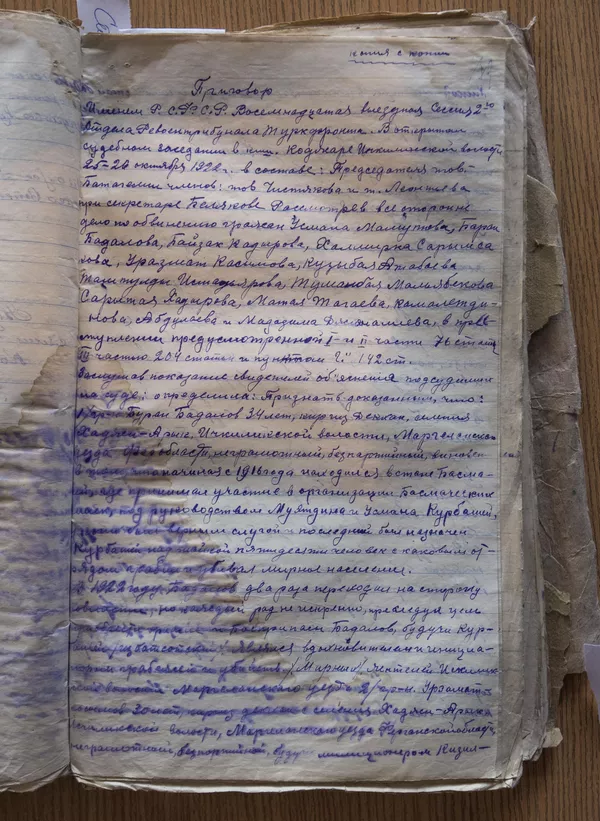 копия с копии
Приговор
Именем Р.С.Ф.С.Р. Восемнадцатая выездная Сессия 2го
Отдела Ревоентрибунала Туркфронта. В открытом
судебном заседании в киш. Ичкилинской волости
25-26 октября 1922 г. в составе: Председателя тов.
членов: тов. Чистякова и т. Леонтьева
при секретаре Белякове Рассмотрев все сторонне
дело по обвинению граждан Усмана Бурхан
Бадалова, Байзак Кадырова, Халмирза Сарымса
кова, Уразмат Касимова, Кузыбая Атабаева
Малыбекова
Сарымсак Матая Тагаева, Камалетди-
нова, Абдулаева и Мадазима в прес-
туплении предусмотренной I-и II части 76 статьи
III частью 204 статьи и пунктом 142 ст.
Заслушав показание свидетелей объяснения подсудимых
на суде: определила: Признать доказанным, что:
Бадалов 34 лет, киргиз Дехкан, селения
Хаджи-Арык, Ичкилинской волости, Маргеланского
уезда Фер.области, неграмотный, безпартийный, виновен
в том, что начиная с 1918 года находился в стане Басма-
чей, где принимал участие в организации Басмаческих
под руководством Муятдина и Усмана Курбашей,
был верным слугой и последний был назначен
Курбашей над шайкой пятьдесят человек с каковым от-
рядом грабил и убивал мирное население.
В 1922 году Бадалов два раза переходил на сторону
но каждый раз не искренно, преследуя цель
и Бадалов, будучи Кур-
являлся вдохновителем и инициа-
тором грабежей и убийств /Мирных/ жителей Ичкилин-
ской волости Маргеланского уезда 2/ гр-н Уразмат
селения Хаджи-Арыка
Ичкилинской волости, Маргеланского уезда Ферганской области,
неграмотный, безпартийный, будучи милиционером Кизил-